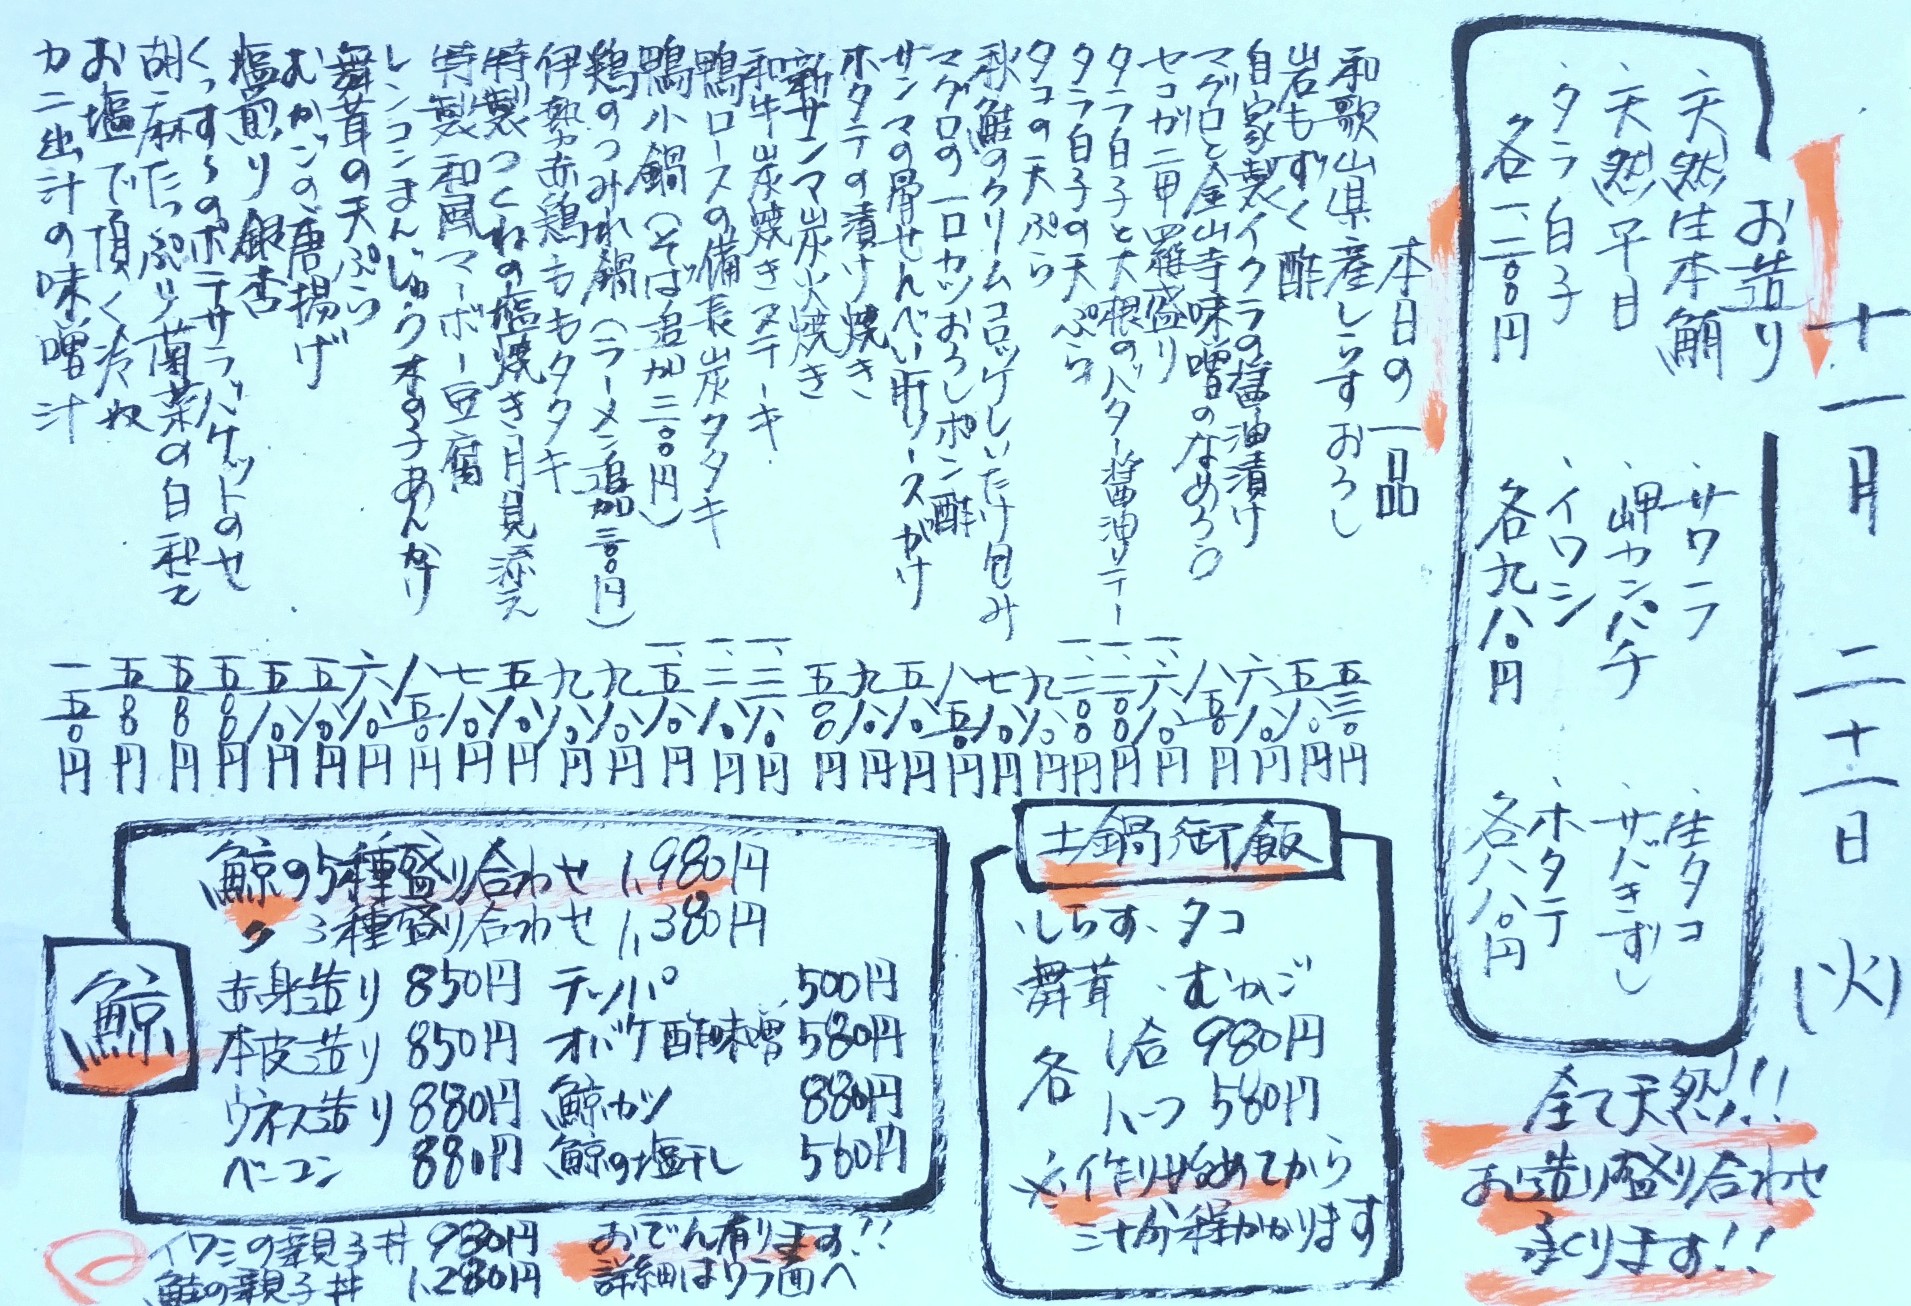 十一月二十一日(火)
お造り
・天然生本鮪
・天然平目
・タラ白子
各一、二〇〇円
・サワラ
・岬カンパチ
・イワシ
各九八〇円
・生タコ
・サバきずし
・ホタテ
各八八〇円
全て天然!!
お造り盛り合わせ
承ります!!
本日の一品
和歌山県産しらすおろし 五三〇円
岩もずく酢 五八〇円
自家製イクラの醤油漬け 六八〇円
マグロと金山寺味噌のなめろう 八五〇円
セコガニ甲羅盛り 一、六八〇円
タラ白子と大根のバター醤油ソテー 一、二〇〇円
タラ白子の天ぷら 一、二〇〇円
タコの天ぷら 九八〇円
秋鮭のクリームコロッケしいたけ包み 七八〇円
マグロの一口カツおろしポン酢 八五〇円
サンマの骨せんべい肝ソースがけ 五八〇円
ホタテの漬け焼き 九八〇円
新サンマ炭火焼き 五〇〇円
和牛炭焼きステーキ 一、三八〇円
鴨ロースの備長炭タタキ 一、二八〇円
鴨小鍋(そば追加三〇〇円) 一、五八〇円
鶏のつみれ鍋(ラーメン追加三〇〇円) 九八〇円
伊勢赤鶏ももタタキ 九八〇円
特製つくねの塩焼き月見添え 五八〇円
特製和風マーボー豆腐 七八〇円
レンコンまんじゅう木の子あんかけ 八五〇円
舞茸の天ぷら 六八〇円
むかごの唐揚げ 五八〇円
塩煎り銀杏 五八〇円
くっすんのポテサラバケットのせ 五八〇円
胡麻たっぷり菊菜の白和え 五八〇円
お塩で頂く冷奴 五八〇円
カニ出汁の味噌汁 一五〇円
土鍋御飯
・しらす・タコ
舞茸・むかご
各 1合 980円
ハーフ 580円
※作り始めてから
三十分程かかります
鯨
鯨の5種盛り合わせ 1,980円
〃 3種盛り合わせ 1,380円
赤身造り 850円 テッパ 500円
本皮造り 850円 オバケ酢味噌 580円
ウネス造り 880円 鯨カツ 880円
ベーコン 880円 鯨の塩干し 560円
イワシの親子丼 980円
鮭の親子丼 1,280円
おでん有ります!!
詳細はウラ面へ